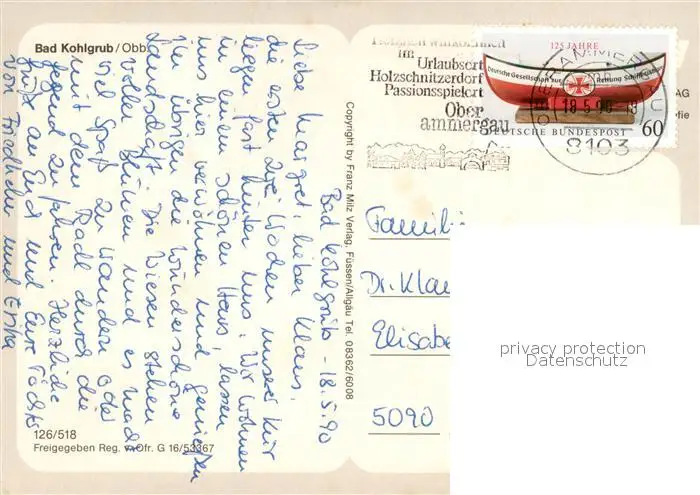 Bad Kohlgrub/Obb.
Bad Kohlgrub - 18.5.90
Liebe Margret, lieber Klaus,
die ersten zwei Wochen unserer Kur
liegen fast hinter uns. Wir wohnen
in einem schönen Haus, lassen
uns hier verwöhnen und genießen
im übrigen die wunderschöne
Landschaft. Die Wiesen stehen
voller Blumen und es macht
viel Spaß zu wandern oder
mit dem Radl durch die
Gegend zu fahren. Herzliche
Grüße an Euch und Eure Töchter
von Friedhelm und Erika
126/518
Freigegeben Reg. v. Ofr. G 16/53367
Copyright by Franz Milz Verlag, Füssen/Allgäu Tel. 08362/6008
im
Urlaubsort
Holzschnitzerdorf
Passionsspielort
Ober
ammergau
125 JAHRE
Deutsche Gesellschaft zur Rettung Schiffbrüchiger
18.5.90
DEUTSCHE BUNDESPOST 60
8103
AG
Familie
Dr. Klau
Elisabe
5090
privacy protection
Datenschutz